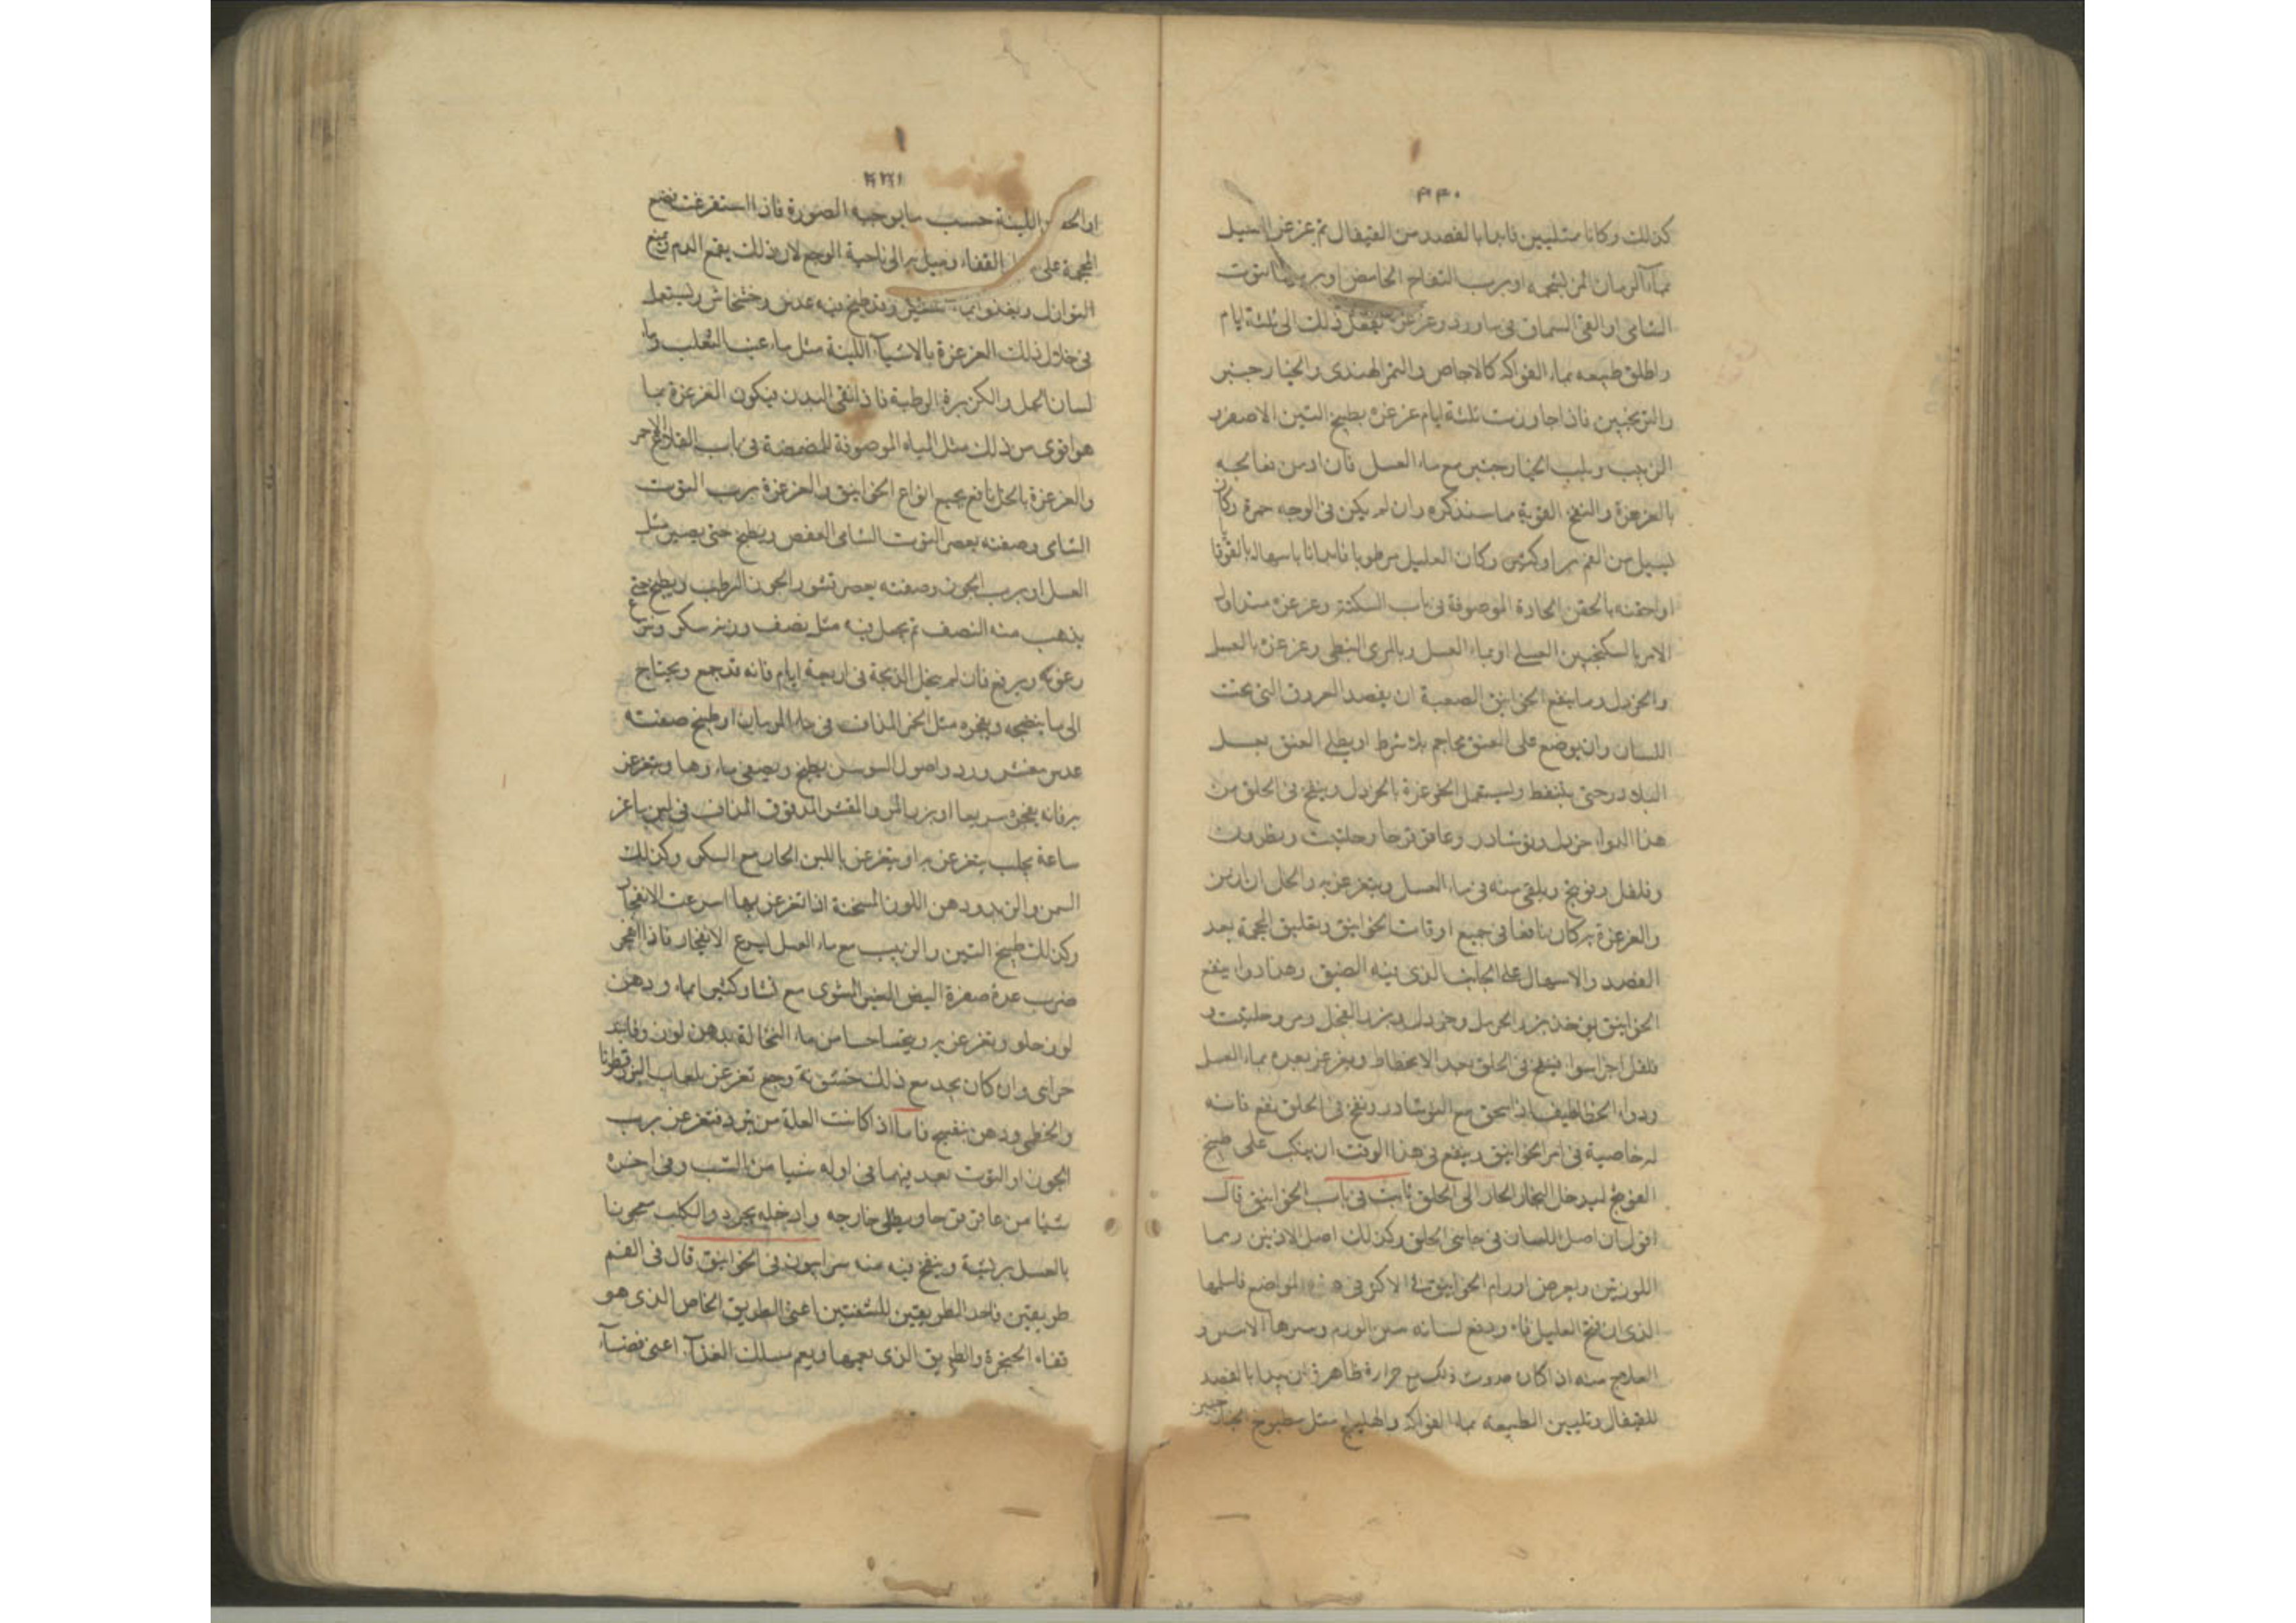 ٣٣٠
كذلك وكانا ممتليين فابدا بالفصد من القيفال ثم غرغر العليل
بماء الرمان المز بشحمه او برب التفاح الحامض او برب التوت
الشامى او القى السماق فى ماورد وغرغره تفعل ذلك الى ثلثة ايام
واطلق طبيعه بماء الفواكه كالاجاص والتمر الهندى والخيار جنبر
والترنجبين فاذا جاوزت ثلثة ايام غرغره بطبيخ التين الاصفر و
الزبيب ولب الخيار جنبر مع ماء العسل فان ازمن فعالجه
بالغرغرة والنفخ القوية مما سنذكره وان لم يكن فى الوجه حمرة وكان
يسيل من الفم براو كثير وكان العليل مرطوبا فابدانا باسهاله بالقوقايا
او احقنه بالحقن الحادة الموصوفة فى باب السكتة وغرغره منذ اول
الامر بالسكنجبين العسلى او بماء العسل وبالمرى النبطى وغرغره بالعسل
والخردل ومما ينفع الخوانيق الصعبة ان يفصد العروق التى تحت
اللسان وان يوضع على العنق محاجم بلا شرط او يطلى العنق بعسل
البلادر حتى يتنفط ويستعمل الغرغرة بالخردل وينفخ فى الحلق من
هذا الدواء خردل ونوشادر وعاقرقرحا وحلتيت ونطرون
وفلفل وفوتنج ويلقى منه فى ماء العسل ويتغرغر به والخل ان ازمن
والغرغرة به كان نافعا فى جميع اوقات الخوانيق وتعليق المحجمة بعد
الفصد والاسهال على الجانب الذى فيه الضيق وهذا دواء ينفع
الخوانيق يوخذ بزر الحرمل وخردل وبزر الفجل ومر وحلتيت و
فلفل اجزا سوا ينفخ فى الحلق بعد الانحطاط ويغرغر بعده بماء العسل
ودواء الخطاطيف اذا سحق مع النوشادر ونفخ فى الحلق نفع فانه
له خاصية فى امر الخوانيق وينفع فى هذا الوقت ان ينكب على طبيخ
الفوتنج ليدخل البخار الحار الى الحلق ثابت فى باب الخوانيق قال
اقول ان اصل اللسان فى جانبى الحلق وكذلك اصل الاذنين وما
اللوزتين ويعرض اورام الخوانيق فى الاكثر فى هذه المواضع فاسلمها
الذى ان فتح العليل فاه ودفع لسانه تبين الورم وشرها الاسر و
العلاج منه اذا كان حدوث ذلك مع حرارة ظاهرة ان يبدا بالفصد
للقيفال وتليين الطبيعه بماء الفواكه والهليلج مثل مطبوخ الخيار جنبر
٣٣١
او الحقن اللينة حسب ما يوجبه الصورة فاذا استفرغت فضع
المحجمة على القفاء وميل به الى ناحية الوجع لان ذلك يقمع الدم ويمنع
النوازل ويغذوا بماء شعير وقد طبخ فيه عدس وخشخاش ويستعمل
فى خلال ذلك الغرغرة بالاشياء اللينة مثل ماء عنب الثعلب وماء
لسان الحمل والكزبرة الرطبة فاذا نقى البدن فيكون الغرغرة بما
هو اقوى من ذلك مثل المياه الموصوفة للمضمضة فى باب القلاع الاحمر
والغرغرة بالخل نافع جميع انواع الخوانيق والغرغرة برب التوت
الشامى وصفته يعصر التوت الشامى العفص ويطبخ حتى يصير مثل
العسل او برب الجوز وصفته يعصر قشور الجوز الرطب ويطبخ حتى
يذهب منه النصف ثم يجعل فيه مثل نصف وزنه سكر وتنزع
رغوته ويرفع فان لم ينحل الذبحة فى اربعة ايام فانه قد جمع ويحتاج
الى ما ينضجه ويفجره مثل الخمر المذاف فى ماء الرمان او طبيخ صفته
عدس مقشر وورد واصول السوسن يطبخ ويصفى ماءوها ويتغرغر
به فانه يفجره سريعا او بزر المر والمقشر المدقوق المذاف فى لبن ماعز
ساعة يحلب يتغرغر به او يتغرغر باللبن الحار مع السكر وكذلك
السمن والزبد ودهن اللوز المسخنة اذا تغرغر بها اسرعت الانفجار
وكذلك طبيخ التين والزبيب مع ماء العسل ليسرع الانفجار فاذا انفجر
ضرب عدة صفرة البيض النيم المشوى مع نشا وكثيرا بماء ودهن
لوز حلو وتغرغر به ويتحسا حسا من ماء النخالة بدهن لوز وفانيد
حراى وان كان يجد مع ذلك خشونة وجع تغرغر بلعاب البزرقطونا
والخطمى ودهن بنفسج فاما اذا كانت العلة من برد فتغرغر برب
الجوز او التوت بعد ينهما فى اوله شيا من الشب وفى اخره
شيا من عاقرقرحا ويطلى خارجه وادخله بخرء والكلب معجونا
بالعسل بريشة وينفخ فيه منه سرابيون فى الخوانيق قال فى الفم
طريقين فاحد الطريقين للشفتين اعنى الطريق الخاص الذى هو
قفاء الحنجرة والطريق الذى يعمها ويعم مسلك الغذاء اعنى فضاء